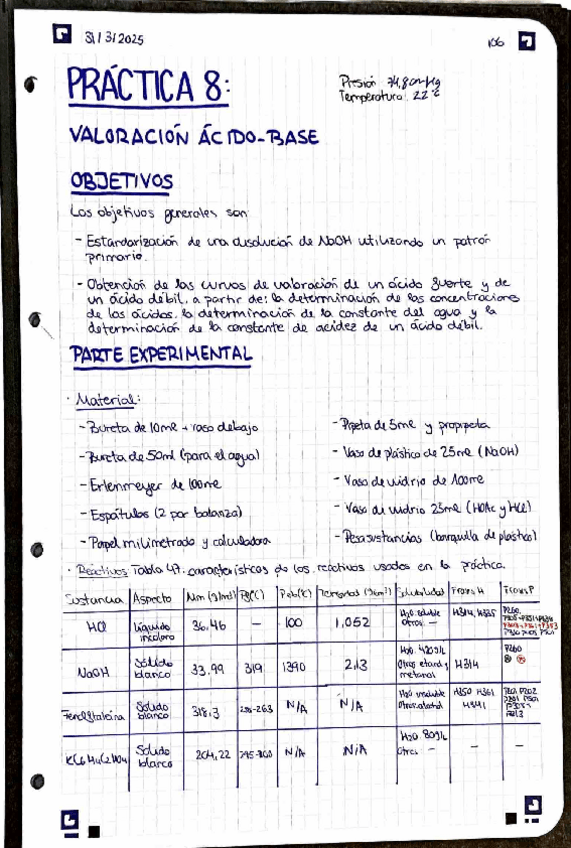 31/3/2025
106
PRÁCTICA 8:
Presión 74,8 cmHg
Temperatura: 22°C
VALORACIÓN ÁCIDO-BASE
OBJETIVOS
Los objetivos generales son
- Estandarización de una disolución de NaOH utilizando un patrón
primario.
- Obtención de las curvas de valoración de un ácido fuerte y de
un ácido débil, a partir de: la determinación de las concentraciones
de los ácidos, la determinación de la constante del agua y la
determinación de la constante de acidez de un ácido débil.
PARTE EXPERIMENTAL
· Material:
- Bureta de 10mL + vaso debajo
- Pipeta de 5mL y propipeta
- Bureta de 50ml (para el agua)
- Vaso de plástico de 25mL (NaOH)
- Erlenmeyer de 100mL
- Vaso de vidrio de 100mL
- Espátulas (2 por balanza)
- Vaso de vidrio 25mL (HOAc y HCl)
- Papel milimetrado y calculadora
- Pesasustancias (barquilla de plástico)
· Reactivos: Tabla 47: características de los reactivos usados en la práctica
Sustancia Aspecto Mm (g/mol) Pf(°C) Peb(°C) Densidad (g/cm³) Solubilidad Frases H Frases P
HCl Líquido incoloro 36.46 — 100 1,052 H2O: soluble Otros: — H314, H335 P260
NaOH Sólido blanco 39.99 319 1390 2,13 H2O: 420g/L Otros: etanol y metanol H314 P260
Fenolftaleína Sólido blanco 318,3 N/A N/A Otros: alcohol H350 H361 H341 P201 P202
Sólido blanco 204,22 295-300 N/A N/A H2O: 80g/L Otros: — — —